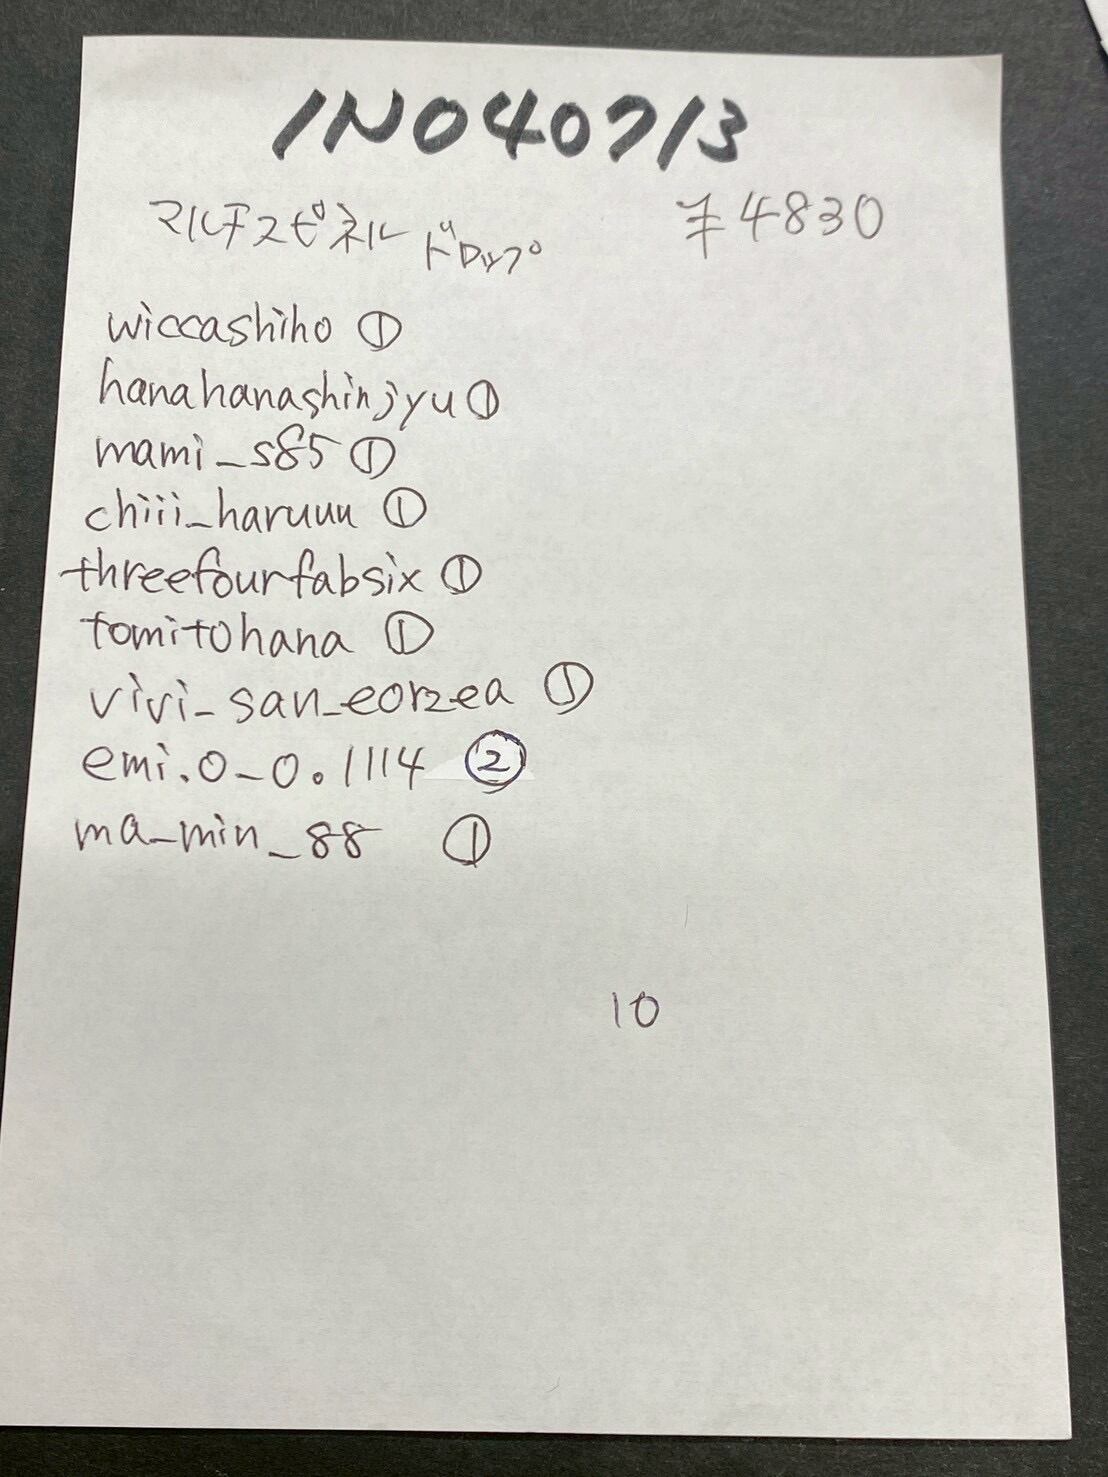 INO40713
マルチスピネル ドロップ ¥4830
wiccashiho ①
hanahanashinjyu ①
mami_s85 ①
chiii_haruuu ①
threefourfabsix ①
tomitohana ①
vivi_san_eorzea ①
emi.0_0.1114 ②
ma_min_88 ①
10